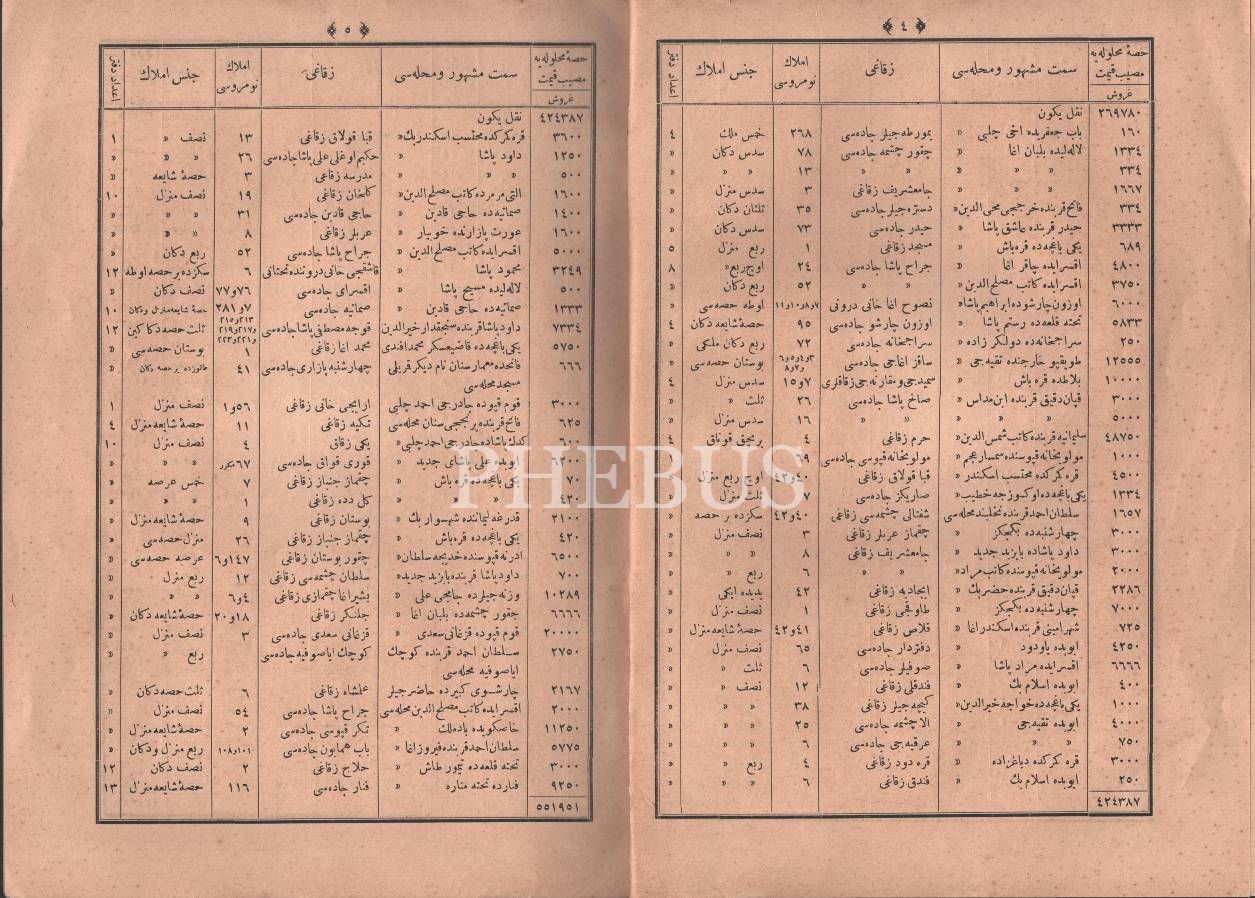 ﴿ ٤ ﴾
حصهٔ محلوله‌یه مصیب قیمت غروش | سمت مشهور ومحله‌سی | زقاغی | املاك نومروسی | جنس املاك | اعداد دفتر
٢٦٩٧٨٠ نقل یكون
١٦٠ باب جعفریده اخی چلبی « یمورطه جیلر جاده‌سی ٢٦٨ خمس ملك ٤
١٣٣٤ لاله‌لیده بلبان اغا « چقور چشمه جاده‌سی ٧٨ سدس دكان «
٣٣٤ « « « « ١٣ « « «
١٦٦٧ « « « جامعشریف زقاغی ٣ سدس منزل «
٣٣٤ فاتح قربنده خرجی محی الدین « دستره جیلر جاده‌سی ٣٥ ثلثان دكان «
٣٣٣٣ حیدر قربنده عاشق پاشا « حیدر جاده‌سی ٧٣ سدس دكان «
٦٨٩ یكی باغچه‌ده قره‌باش « مسجد زقاغی ١ ربع منزل ٥
٤٨٠٠ اقسرایده چاقر اغا « جراح پاشا جاده‌سی ٢٤ اوچ ربع « ٨
٣٧٥٠ اقسرایده كاتب مصلح الدین « « ٥٢ ربع دكان «
٦٠٠٠ اوزون چارشوده ابراهیم پاشا « نصوح اغا خانی درونی ٧و٨و١٠و١١ اوطه حصه‌سی «
٥٨٣٣ تخته قلعه‌ده رستم پاشا « اوزون چارشو جاده‌سی ٩٥ حصهٔ شایعه دكان ٤
٢٥٠ سراجخانه‌ده دولكر زاده « سراجخانه جاده‌سی ٧٢ ربع دكان ملكی «
١٢٥٥٥ طوپقپو خارجنده تقیه‌جی « ساقز اغاجی جاده‌سی ٣و٤و٥و٦و٧و٨ بوستان حصه‌سی «
١٠٠٠٠ بلاطده قره‌باش « سمیدجی ومقارنه‌جی زقاقلری ٧و١٥ سدس منزل ٤
٣٠٠٠ قپان دقیق قربنده ابن مداس « صالح پاشا جاده‌سی ٢٦ ثلث « «
٥٠٠٠ « « « « ١٦ سدس منزل «
٤٨٧٥٠ سلیمانیه قربنده كاتب شمس الدین « حرم زقاغی ٤ بر بچق قوناق ٤
١٠٠٠ مولویخانه قپوسنده سمسار عجم « مولویخانه قپوسی جاده‌سی ٦٩
٤٥٠٠ قره كمركده محتسب اسكندر « قبا قولاق زقاغی ٤٠و٤٢ اوچ ربع منزل
١٣٣٤ یكی باغچه‌ده اوكسوزجه خطیب « صاریكز جاده‌سی ٧ ثلث منزل «
١٦٥٧ سلطان احمد قربنده نخلبند محله‌سی شفتالی چشمه‌سی زقاغی ٤٠و٤٢ سكزده بر حصه «
٣٠٠٠ چهارشنبه‌ده بكمكز « چقماز عربلر زقاغی ٣ نصف منزل «
٣٠٠٠ داود پاشاده بایزید جدید « جامعشریف زقاغی ٨ « « «
٢٠٠٠ مولویخانه قپوسنده كاتب مراد « « « ٦ ربع « «
٢٢٨٦ قپان دقیق قربنده حضربك « ایجادیه زقاغی ٤٢ یدیده ایكی «
٧٠٠٠ چهارشنبه‌ده بكمكز « طاوقجی زقاغی ١ نصف منزل «
٧٢٥ شهرامینی قربنده اسكندر اغا « قلاص زقاغی ٤١و٤٢ حصهٔ شایعه منزل «
٤٢٥٠ ایوبده یاودود « دفتردار جاده‌سی ٦٥ نصف منزل «
٦٦٦٦ اقسرایده مراد پاشا « صوفیلر جاده‌سی ٦ ثلث « «
٤٠٠ ایوبده اسلام بك « فندقلی زقاغی ١٢ نصف « «
١٠٠٠ یكی باغچه‌ده خواجه خیرالدین « كیچه جیلر زقاغی ٣٨ « « «
٤٠٠٠ ایوبده تقیه‌جی « الاچشمه جاده‌سی ٢٥ « « «
٧٥٠ « « « عرقیه‌جی جاده‌سی ٦ « « «
٣٠٠٠ قره كمركده دباغزاده « قره دود زقاغی ٤ ربع « «
٢٥٠ ایوبده اسلام بك « فندق زقاغی ٦ « « «
٤٢٤٣٨٧
﴿ ٥ ﴾
حصهٔ محلوله‌یه مصیب قیمت غروش | سمت مشهور ومحله‌سی | زقاغی | املاك نومروسی | جنس املاك | اعداد دفتر
٤٢٤٣٨٧ نقل یكون
٣٦٠٠ قره كمركده محتسب اسكندربك « قبا قولاق زقاغی ١٣ نصف « ١
١٢٥٠ داود پاشا « حكیم اوغلی علی پاشا جاده‌سی ٢٦ « « «
٥٠٠ « « « مدرسه زقاغی ٣ حصهٔ شایعه «
١٦٠٠ التی مرمرده كاتب مصلح الدین « كلخان زقاغی ١٩ نصف منزل ١٠
١٤٠٠ صماتیه‌ده حاجی قادین « حاجی قادین جاده‌سی ٣١ « « «
١٦٠٠ عورت پازارنده خوبیار « عربلر زقاغی ٨ « « «
٥٠٠٠ اقسرایده كاتب مصلح الدین « جراح پاشا جاده‌سی ٥٢ ربع دكان «
٣٢٤٩ محمود پاشا « قاشقجی خانی دروننده تحتانی ٦ سكزده بر حصه اوطه ١٢
٥٠٠ لاله‌لیده مسیح پاشا « اقسرای جاده‌سی ٧٦و٧٧ نصف دكان «
١٣٣٣ صماتیه‌ده حاجی قادین « صماتیه جاده‌سی ٧و٢٨١ حصهٔ شایعه منزل ودكان ١٠
٧٣٣٤ داود پاشا قربنده سنجقدار خیرالدین قوجه مصطفی پاشا جاده‌سی ٢١٣و٢١٥و٢١٧و٢١٩و٢٢١و٢٢٣ ثلث حصه دكاكین ١٢
٥٧٥٠ یكی باغچه‌ده قاضیعسكر محمد افندی محمد اغا زقاغی ١ بوستان حصه‌سی «
٦٦٦ فاتحده معمار سنان نام دیكر قریلی مسجد محله‌سی چهارشنبه پازاری جاده‌سی ٤١ بر حصه دكان «
٣٠٠٠ قوم قپوده چادرجی احمد چلبی ارابجی خانی زقاغی ٥٦و١ نصف منزل ١
٦٢٥ فاتح قربنده سنان محله‌سی تكیه زقاغی ١١ حصهٔ شایعه منزل ٤
٦٠٠ كدك پاشاده چادرجی احمد چلبی « یكی زقاق ٤ نصف منزل ١٠
٦٢٠٠ ایوبده علی پاشای جدید « قوری قواق جاده‌سی ٦٧ مكرر « « «
٧٠ یكی باغچه‌ده قره باش « چقماز جنباز زقاغی ٧ خمس عرصه «
٤٢٠ « « كل دده زقاغی ١ « « «
٢١٠٠ قدرغه لیماننده شهسوار بك « بوستان زقاغی ٩ حصهٔ شایعه منزل «
٤٢٠ یكی باغچه‌ده قره‌باش « چقماز جنباز زقاغی ٢٦ منزل حصه‌سی «
٦٥٠٠ ادرنه قپوسنده خدیجه سلطان « چقور بوستان زقاغی ١٤٧و٦ عرصه حصه‌سی «
٧٠٠ داود پاشا قربنده بایزید جدید « سلطان چشمه‌سی زقاغی ١٢ ربع منزل «
١٠٢٨٩ وزنه‌جیلرده جامجی علی « بشیر اغا چقمازی زقاغی ٤و٦ « « «
٦٦٦٦ چقور چشمه‌ده بلبان اغا « جلنكر زقاغی ١٨و٢٠ حصهٔ شایعه دكان «
٢٠٠٠٠ قوم قپوده قزغانی سعدی « قزغانی سعدی جاده‌سی ٣ نصف منزل «
٢٧٥٠ سلطان احمد قربنده كوچك ایاصوفیه محله‌سی كوچك ایاصوفیه جاده‌سی ربع « «
٢١٦٧ چارشوی كبیرده حاضر جیلر علمشاه زقاغی ٦ ثلث حصه دكان «
٢٠٠٠ اقسرایده كاتب مصلح الدین محله‌سی جراح پاشا جاده‌سی ٥٤ نصف منزل «
١١٢٥٠ خاصكویده یاد ملك « تكر قپوسی جاده‌سی ٢ حصهٔ شایعه منزل «
٥٧٧٥ سلطان احمد قربنده فیروز اغا « باب همایون جاده‌سی ١٠١و١٠٨ ربع منزل ودكان «
٣٠٠٠ تخته قلعه‌ده تیمور طاش « حلاج زقاغی ٢ نصف دكان ١٢
٩٢٥٠ فنارده تخته مناره « فنار جاده‌سی ١١٦ حصهٔ شایعه منزل ١٣
٥٥١٩٥١
PHEBUS